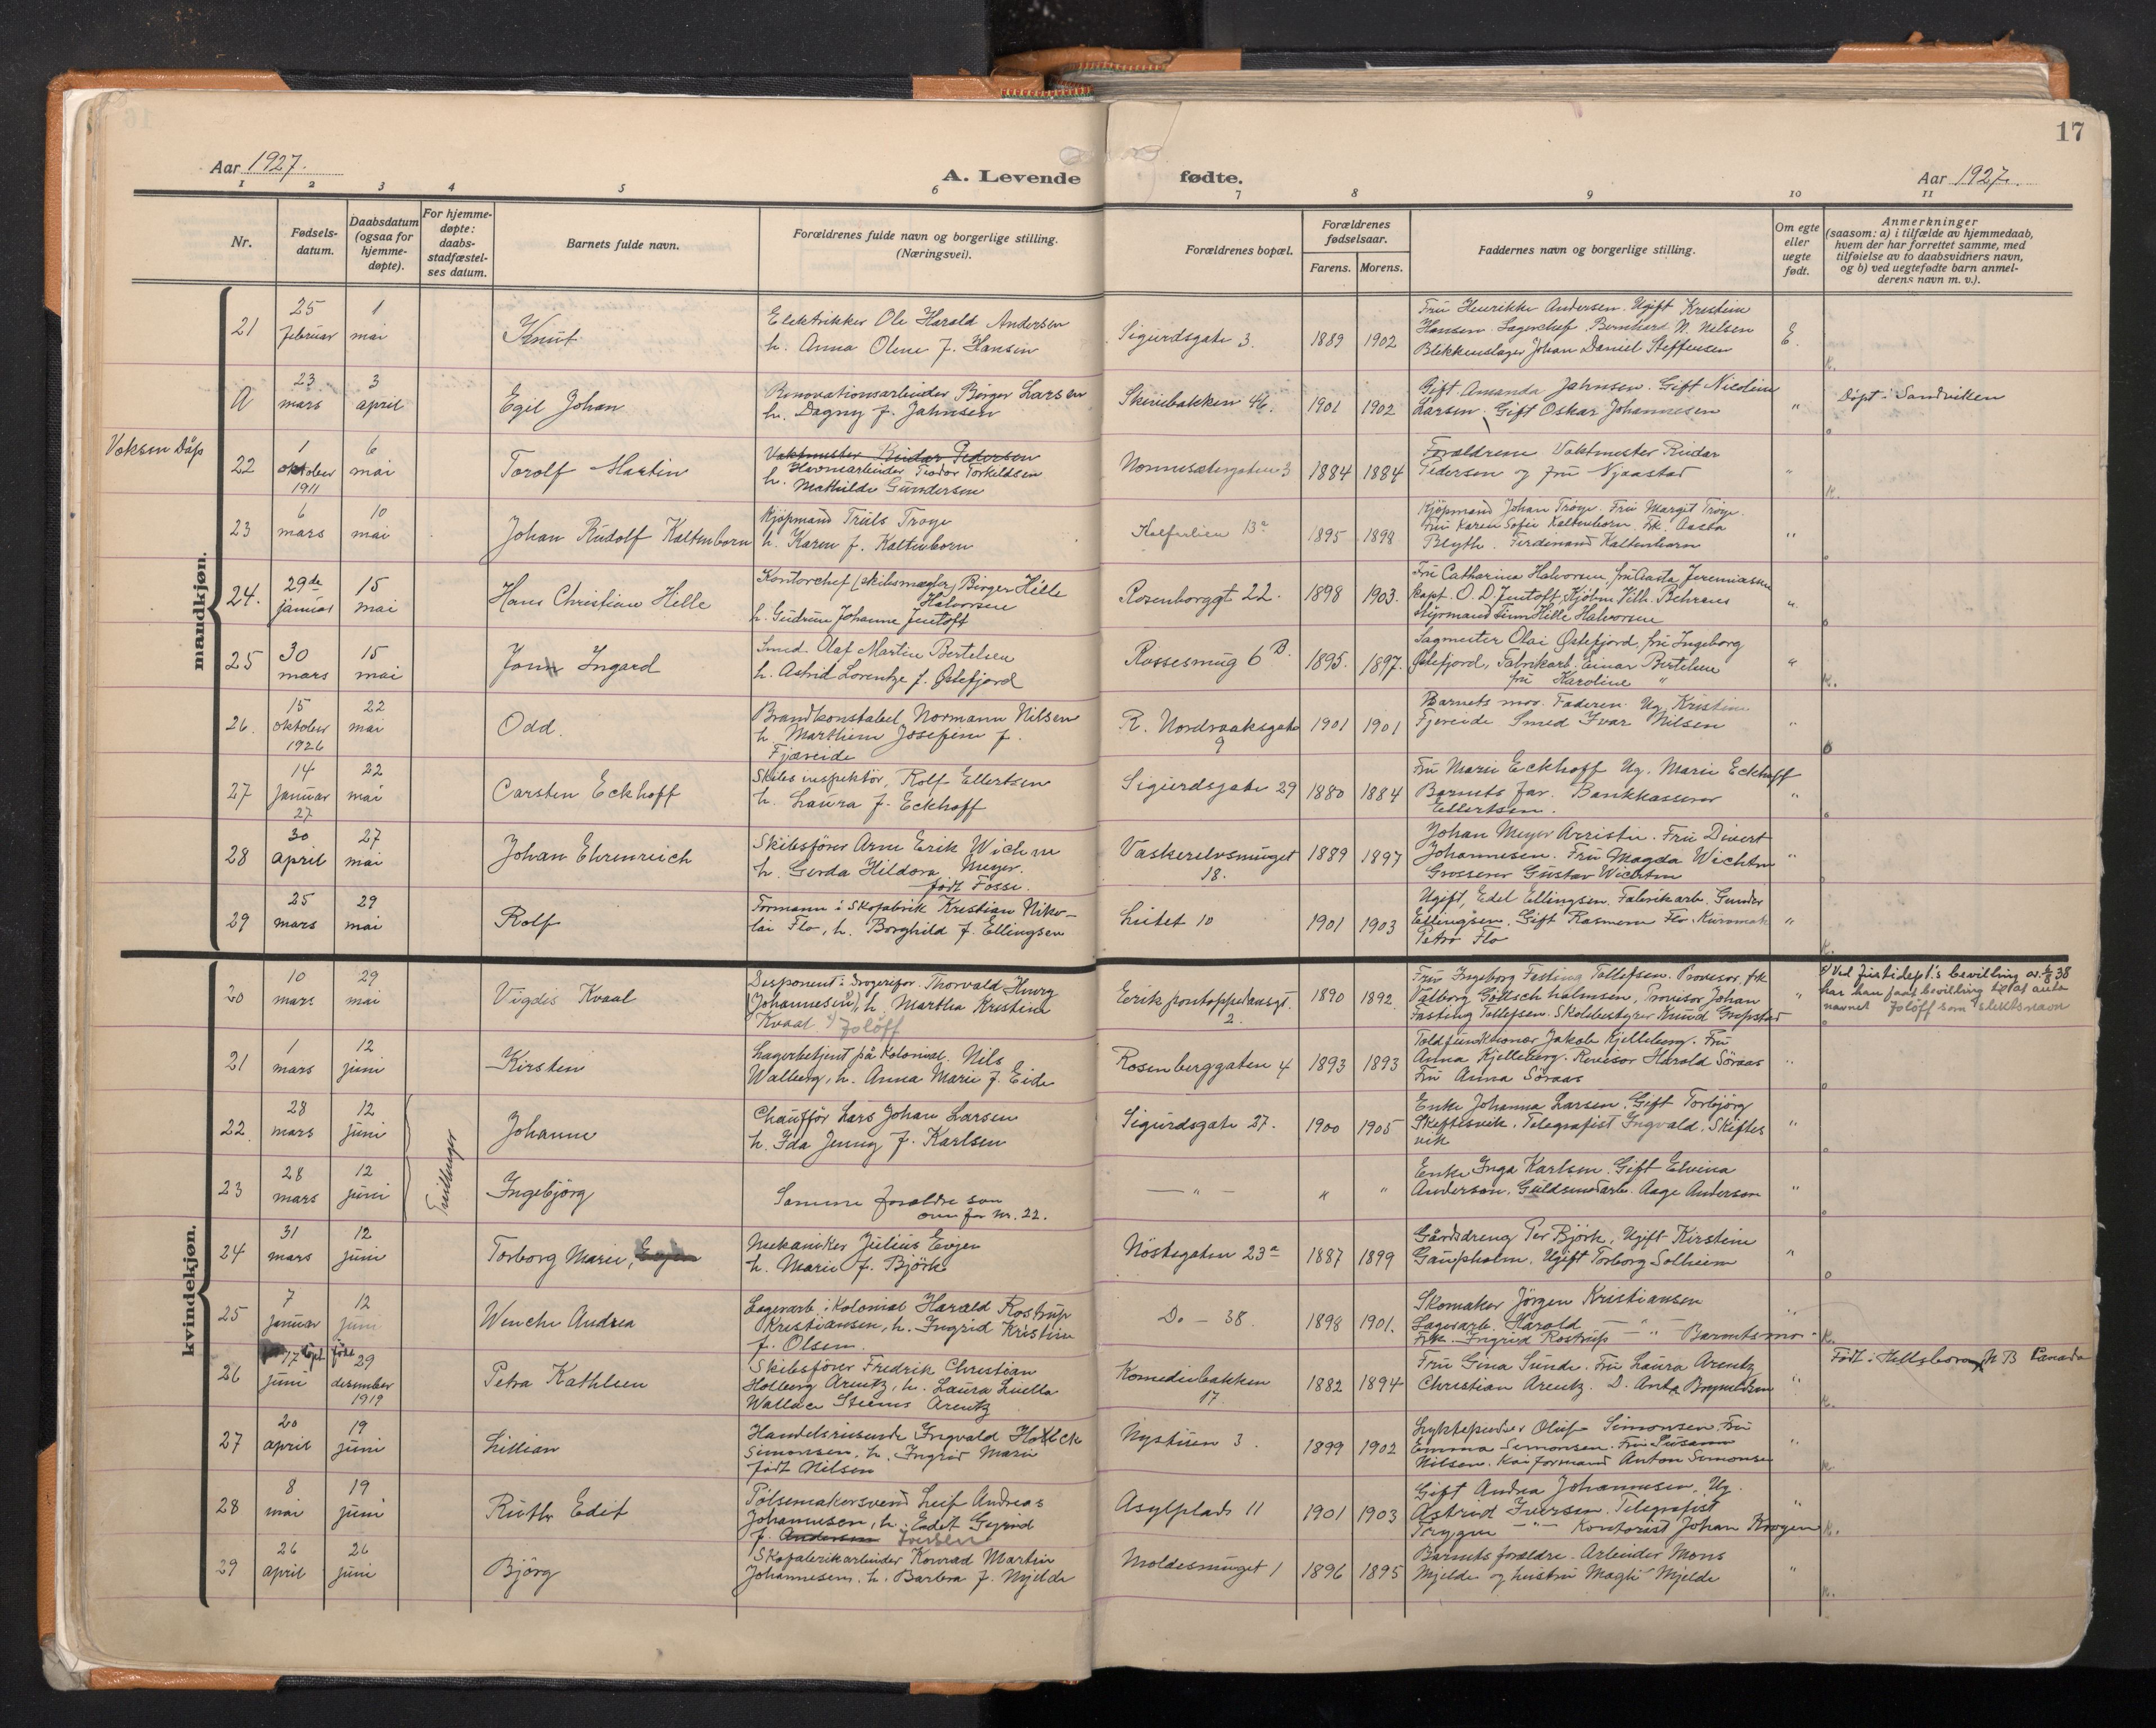 17
Aar 1927.
A. Levende fødte.
Aar 1927.
1 2 3 4 5 6 7 8 9 10 11
Nr.
Fødsels-
datum.
Daabsdatum
(ogsaa for
hjemme-
døpte).
For hjemme-
døpte:
daabs-
stadfæstel-
ses datum.
Barnets fulde navn.
Forældrenes fulde navn og borgerlige stilling.
(Næringsvei).
Forældrenes bopæl.
Forældrenes
fødselsaar.
Farens. Morens.
Faddernes navn og borgerlige stilling.
Om egte
eller
uegte
født.
Anmerkninger
(saasom: a) i tilfælde av hjemmedaab,
hvem der har forrettet samme, med
tilføielse av to daabsvidners navn,
og b) ved uegtefødte barn anmel-
derens navn m. v.).
mandkjøn.
21
25
februar
1
mai
Knut
Elektriker Ole Harald Andersen
h. Anna Olene f. Hansen
Sigurdsgate 3.
1889 1902
Fru Henrikke Andersen. Ugift Kristine
Hansen. Lagerchef Bernhard N. Nilsen
Blikkenslager Johan Daniel Steffensen
E.
K.
A
23
mars
3
april
Egil Johan
Renovationsarbeider Birger Larsen
h. Dagny f. Jahnsen
Skivebakken 46.
1901 1902
Gift Amanda Jahnsen. Gift Nicoline
Larsen. Gift Oskar Johannesen
"
Döpt i Sandviken
o
Voksen Dåp
22
1
oktober
1911
6
mai
Torolf Martin
Vaktmester Reidar Pedersen
h. Havnearbeider Teodor Torkildsen
Mathilde Gundersen
Nonnesetergaten 3
1884 1884
Forældrene Vaktmester Reidar
Pedersen og fru Njaastad
"
K.
23
6
mars
10
mai
Johan Rudolf Kaltenborn
Kjøpmand Truls Troye
h. Karen f. Kaltenborn
Kalfarlien 13a
1895 1898
Kjöpmand Johan Troye. Fru Margit Troye.
Fru Karen Sofie Kaltenborn. Frk. Aasta
Blyth. Ferdinand Kaltenborn
"
o
24.
29de
januar
15
mai
Hans Christian Hille
Kontorchef (skibsmægler) Birger Hille
Halvorsen
h. Gudrun Johanne Jentoft
Rosenborggt 22.
1898 1903.
Fru Catharina Halvorsen, fru Aasta Jeremiassen
kapt. O. D. Jentoft, Kjöbm. Vilh. Behrens
styrmand Finn Hille Halvorsen
"
o
25
30
mars
15
mai
Jonn Ingard
Smed. Olaf Martin Bertelsen
h. Astrid Lorentze f. Østefjord
Rossesmug 6 B.
1895. 1897.
Sagmester Olai Østefjord, fru Ingeborg
Østefjord, Fabrikarb. Einar Bertelsen
fru Karoline "
"
K.
26.
15
oktober
1926
22
mai
Odd.
Brandkonstabel Normann Nilsen
h. Marthine Josefine f.
Fjæreide
R. Nordraaksgate
9
1901 1901
Barnets mor. Faderen. Ug. Kristine
Fjereide Smed Ivar Nilsen
"
o
27
14
januar
27
22
mai
Carsten Eckhoff
Skibsinspektör, Rolf Ellertsen
h. Laura f. Eckhoff
Sigurdsgate 29
1880 1884
Fru Marie Eckhoff Ug. Marie Eckhoff
Barnets far. Bankkasserer
Ellertsen.
"
o
28
30
april
27
mai
Johan Ehrenreich
Skibsfører Arne Erik Wichne
h. Gerda Hildora Meyer.
født Fosse.
Vaskerelvsmuget
18.
1889 1897
Johan Meyer
Johannesen. Fru Magda Wichne
Grosserer Gustav Wichne
"
o
29
25
mars
29
mai
Rolf
Formann i skofabrik Kristian Niko-
lai Flo, h. Borghild f. Ellingsen
Luitet 10
1901 1903
Ugift, Edel Ellingsen. Fabrikarb. Gunder
Ellingsen. Gift Rasmine Flo
Petra Flo
"
K.
kvindekjøn.
20
10
mars
29
mai
Vigdis Kvaal
Disponent i drogeriforr. Thorvald Henry
(Johannesen¹), h. Martha Kristine
Kvaal ¹) Jolöff
Erik pontoppidansgt.
2.
1890 1892
Fru Ingeborg Fasting Tollefsen. Provisor, frk
Valborg Göttsch Halmsen, Provisor Johan
Fasting Tollefsen. Skolebestyrer Knud
"
¹) Ved Justisdept's bevilling av 6/8 38
har han faat bevilling til at anta
navnet Jolöff som slektsnavn
o
21
1
mars
12
juni
Kirsten
Lagerbetjent på kolonial. Nils
Walberg, h. Anna Marie f. Eide
Rosenberggaten 4
1893 1893
Toldfunktionær Jakob Kjelleberg. Fru
Anna Kjelleberg. Revisor Harald Söraas
Fru Anna Söraas
"
o
22
28
mars
12
juni
Tvillinger
Johanne
Chauffør Lars Johan Larsen
h. Ida Jenny f. Karlsen
Sigurdsgate 27.
1900 1905
Enke Johanna Larsen. Gift Torbjörg
Skiftesvik. Telegrafist Ingvald Skiftes
vik
"
o
23
28
mars
12
juni
Ingebjörg
Samme forældre som
ovenfor nr. 22.
— " —
" "
Enke Inga Karlsen. Gift Elvina
Andersen. Guldsmedarb. Aage Andersen
"
o
24
31
mars
12
juni
Torborg Marie, Evjen
Mekaniker Julius Evjen
h. Marie f. Björk
Nöstegaten 23a
1887 1899
Gårdsdreng Per Björk, Ugift Kirstine
Gaupholm, Ugift Torborg Solheim
"
o
25
7
januar
12
juni
Wenche Andrea
Lagerarb. i Kolonial Harald Rostrup
Kristiansen, h. Ingrid Kristine
f. Olsen.
Do — 38.
1898 1901.
Skomaker Jörgen Kristiansen
Lagerarb. Harald — " —
Frk. Ingrid Rostrup — " — Barnets mor
"
K.
26
17
juni
29
desember
1919
Petra Kathleen
Skibsfører Fredrik Christian
Holberg Arentz, h. Laura Luella
Wallace Steeves Arentz
Komediebakken
17.
1882 1894
Fru Gina Sunde. Fru Laura Arentz
Christian Arentz. D. Anta Brynildsen
"
Født i Hillsborough N B Canada
K.
27
20
april
19
juni
Lillian
Handelsreisende Ingvald Holck
Simonsen, h. Ingrid Marie
født Nilsen
Nystuen 3.
1899 1902
Lyktepudser Oluf Simonsen. Fru
Emma Simonsen. Fru Susanne
Nilsen. Kaiformand Anton Simonsen
"
K.
28
8
mai
19
juni
Ruth Edit
Pölsemakersvend Leif Andreas
Johannesen, h. Endet Gyrid
f. Andersen Iversen
Asylplads 11
1901 1903
Gift Andrea Johannesen, Ug.
Astrid Iversen. Telegrafist
Trygve — " — Kontorist Johan Krogen
"
K.
29
26
april
26
juni
Björg
Skofabrikarbeider Konrad Martin
Johannesen. h. Barbra f. Mjelde
Moldesmuget 1
1896 1895
Barnets forældre. Arbeider Mons
Mjelde og hustru Magli Mjelde
"
K.